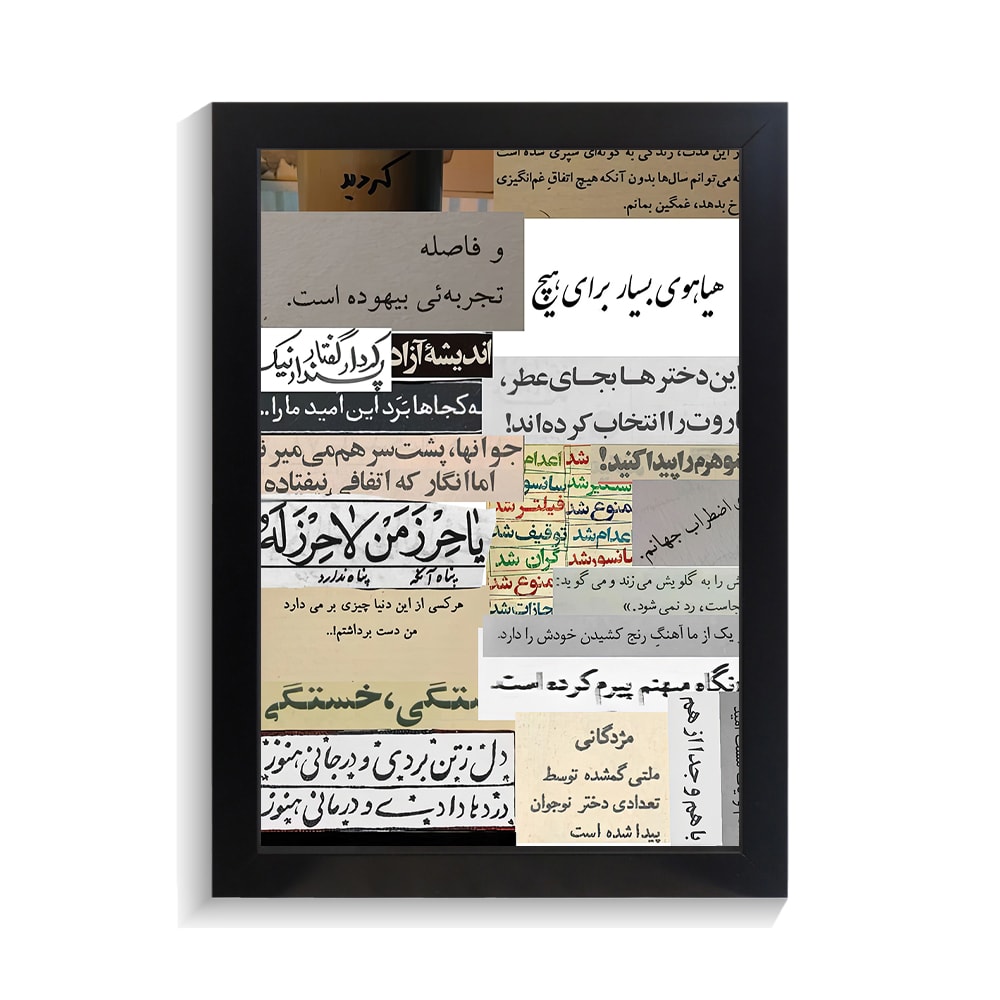 کردید
در این مدت، زندگی به گونه‌ای سپری شده است
که می‌توانم سال‌ها بدون آنکه هیچ اتفاقِ غم‌انگیزی
رخ بدهد، غمگین بمانم.
و فاصله
تجربه‌ئی بیهوده است.
هیاهوی بسیار برای هیچ
کردار گفتار
پندار نیک
اندیشهٔ آزاد
این دخترها بجای عطر،
باروت را انتخاب کرده‌اند!
به کجاها بَرَد این امید ما را..
جوانها، پشت سر هم می‌میرن
اما انگار که اتفاقی نیفتاده
شوهرم را پیدا کنید!
اعدام شد
سانسور شد
فیلتر شد
توقیف شد
گران شد
ممنوع شد
مجازات شد
ممنوع شد
اعدام شد
سانسور شد
اضطراب جهانم.
یا حِرْزَ مَنْ لا حِرْزَ لَهُ
پناه آنکه پناه ندارد
را به گلویش می‌زند و می‌گوید:
رد نمی‌شود.»
هر کسی از این دنیا چیزی بر می دارد
من دست برداشتم!..
یک از ما آهنگِ رنج کشیدن خودش را دارد.
نگاه میهنم پیرم کرده است
خستگی، خستگی
دل ز تن بردی و در جانی هنوز
دردها دادی و درمانی هنوز
مژدگانی
ملتی گمشده توسط
تعدادی دختر نوجوان
پیدا شده است
با هم و جدا از هم